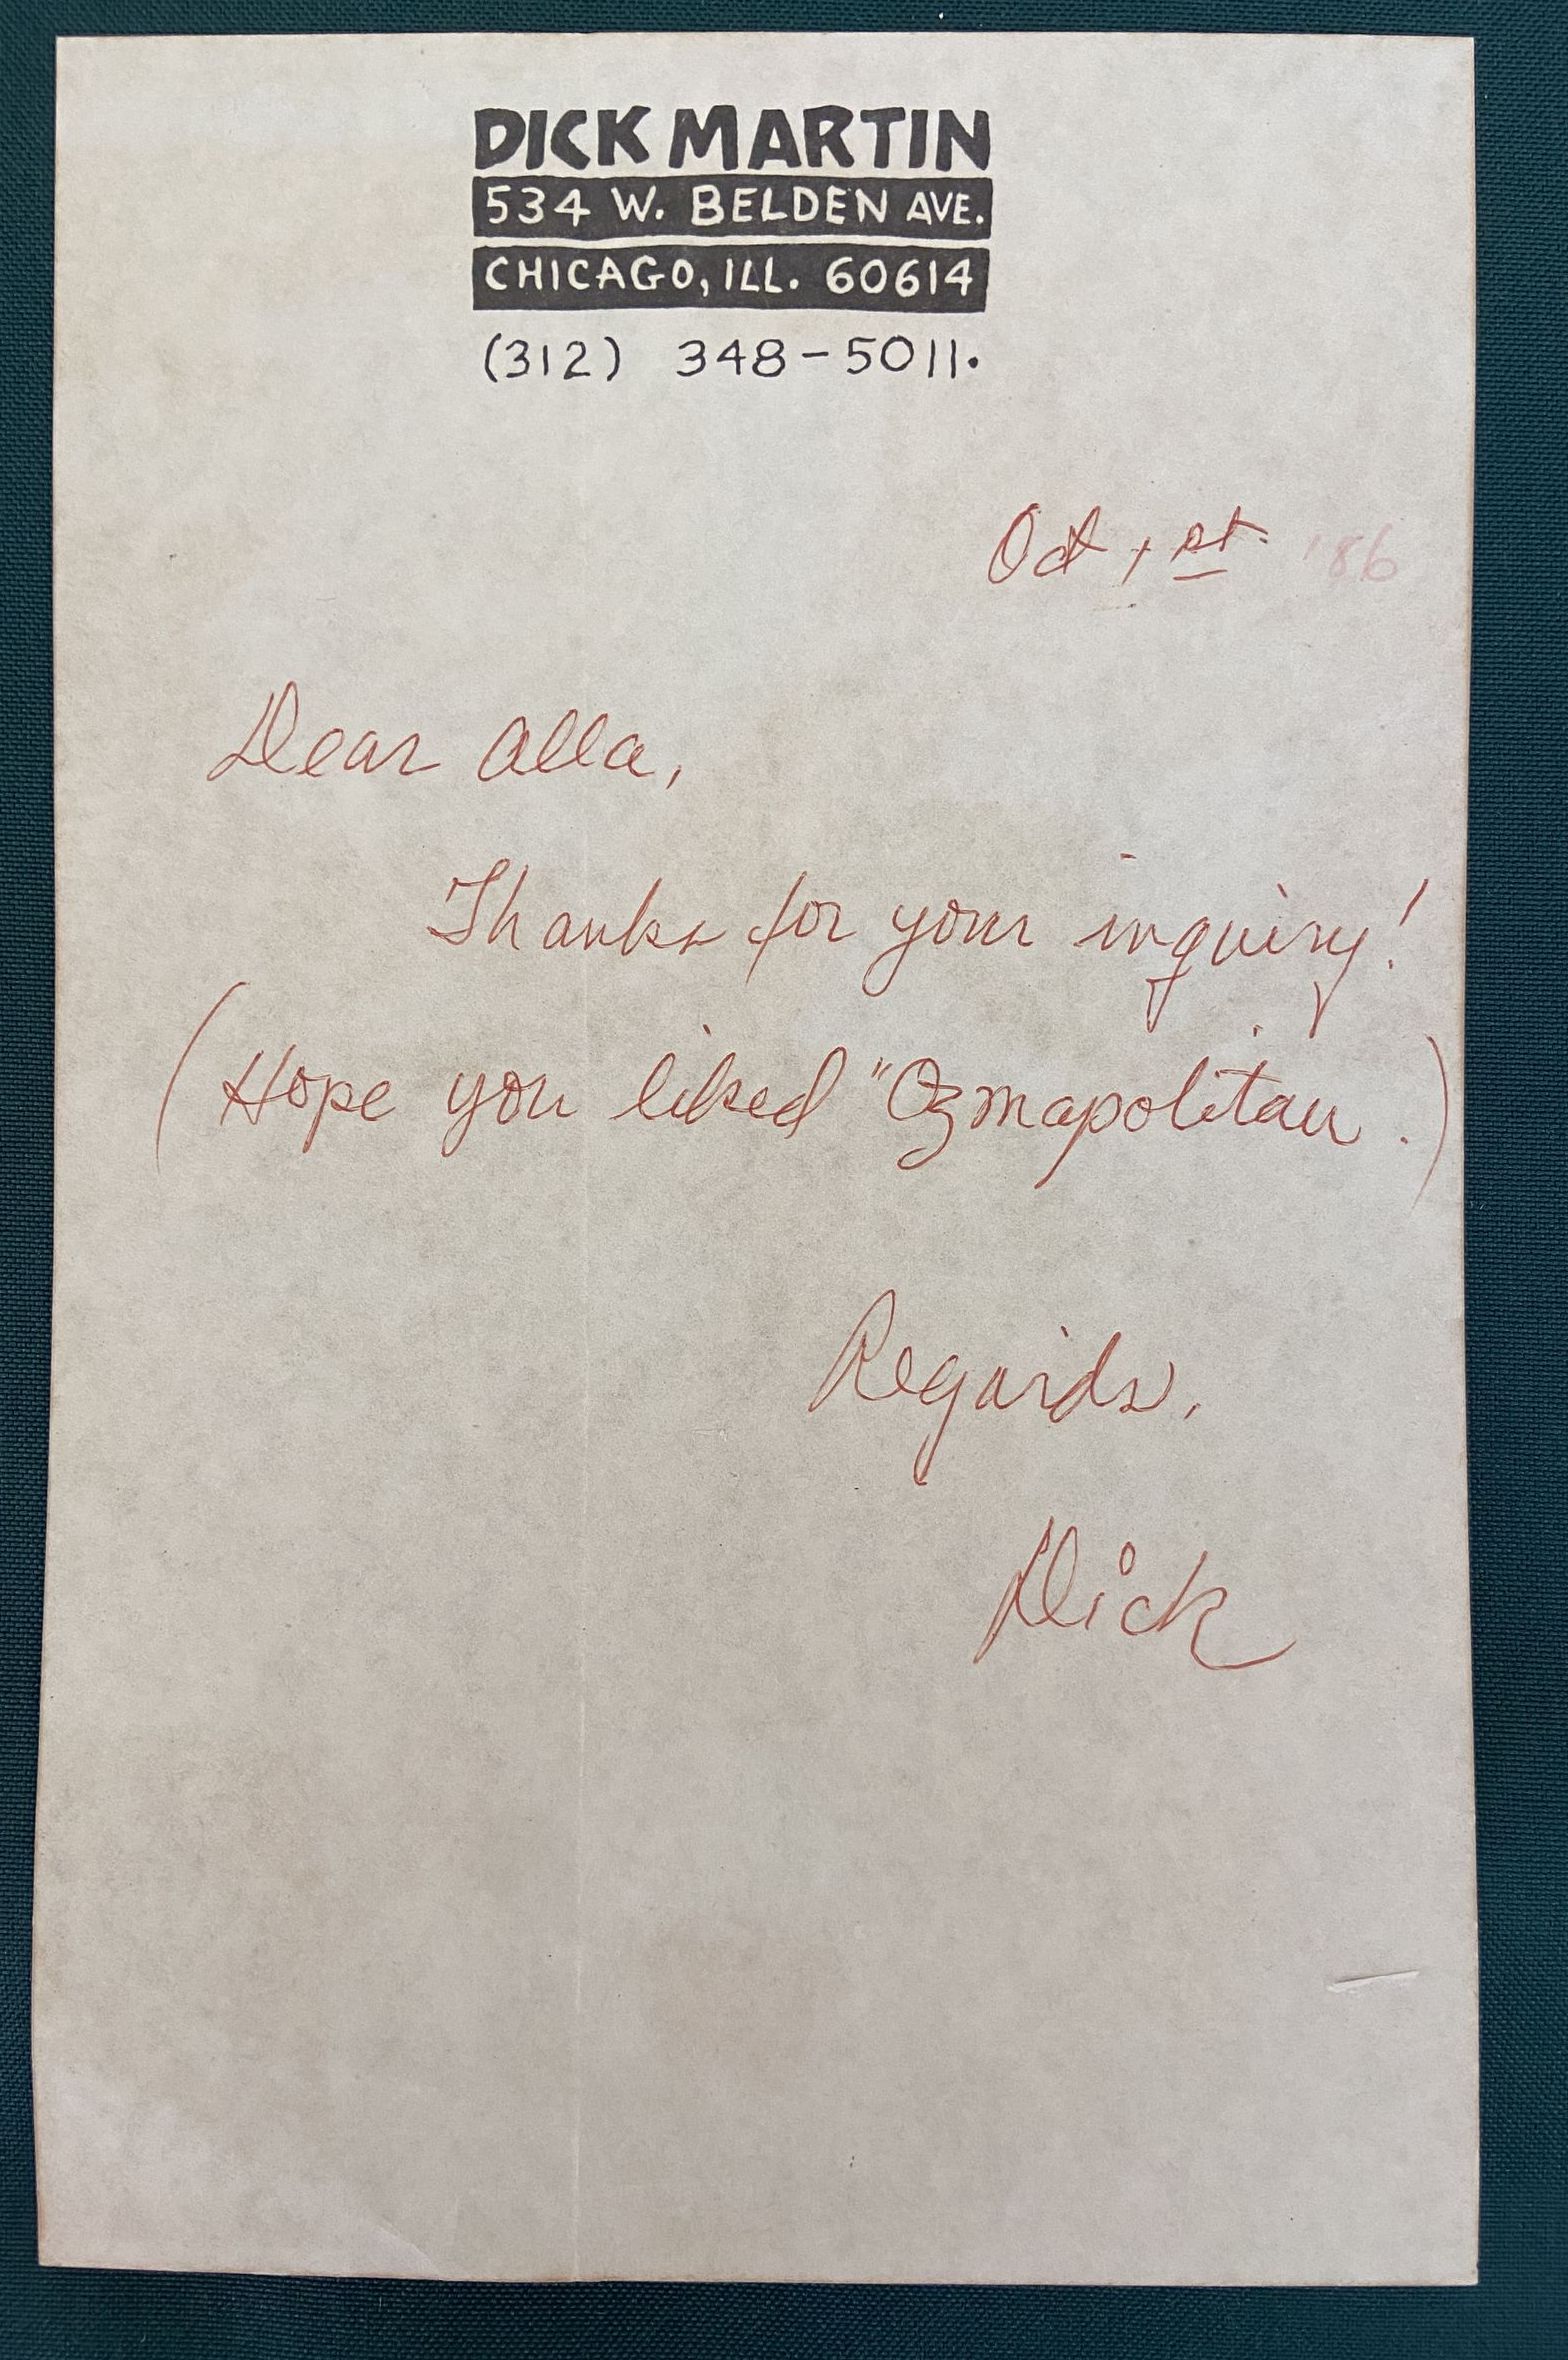 DICK MARTIN
534 W. BELDEN AVE.
CHICAGO, ILL. 60614
(312) 348-5011.
Oct 1st '86
Dear Alla,
Thanks for your inquiry!
(Hope you liked "Ozmapolitan.)
Regards,
Dick